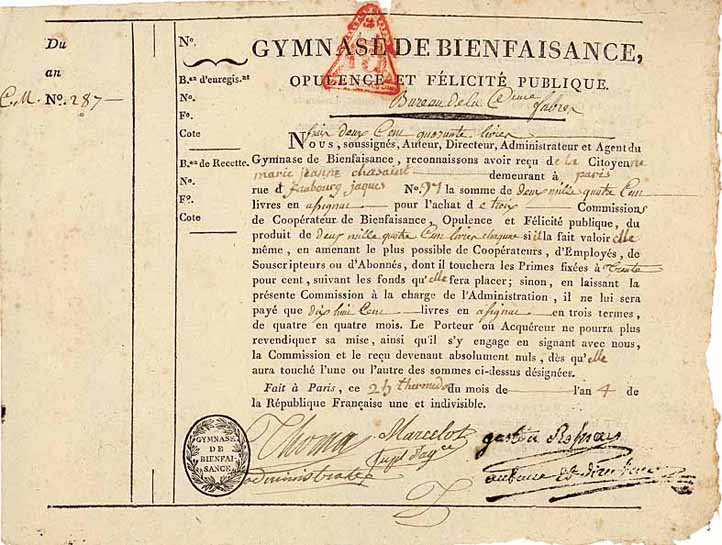 Du
an
C.M. N.º 287
N.º
B.au d'enregis.nt
N.º
F.º
Cote
B.au de Recette.
N.º
F.º
Cote
GYMNASE DE BIENFAISANCE,
OPULENCE ET FÉLICITÉ PUBLIQUE.
Bureau de la Cenne
deux Cent quarante livres
NOUS, soussignés, Auteur, Directeur, Administrateur et Agent du
Gymnase de Bienfaisance, reconnaissons avoir reçu de la Citoyenne
marie jeanne demeurant à paris
rue et faubourg jaques N.º 97 la somme de deux mille quatre Cent
livres en asignat pour l'achat de trois Commissions
de Coopérateur de Bienfaisance, Opulence et Félicité publique, du
produit de deux mille quatre Cent livres chaqune si il la fait valoir elle
même, en amenant le plus possible de Coopérateurs, d'Employés, de
Souscripteurs ou d'Abonnés, dont il touchera les Primes fixées à trente
pour cent, suivant les fonds qu'elle fera placer; sinon, en laissant la
présente Commission à la charge de l'Administration, il ne lui sera
payé que dix huit Cent livres en asignat en trois termes,
de quatre en quatre mois. Le Porteur ou Acquéreur ne pourra plus
revendiquer sa mise, ainsi qu'il s'y engage en signant avec nous,
la Commission et le reçu devenant absolument nuls, dès qu'elle
aura touché l'une ou l'autre des sommes ci-dessus désignées.
Fait à Paris, ce thermidor du mois de l'an 4 de
la République Française une et indivisible.
GYMNASE
DE
BIENFAI-
SANCE
Thoma Marcelot gaston Rosnay
administrateur auteur et directeur